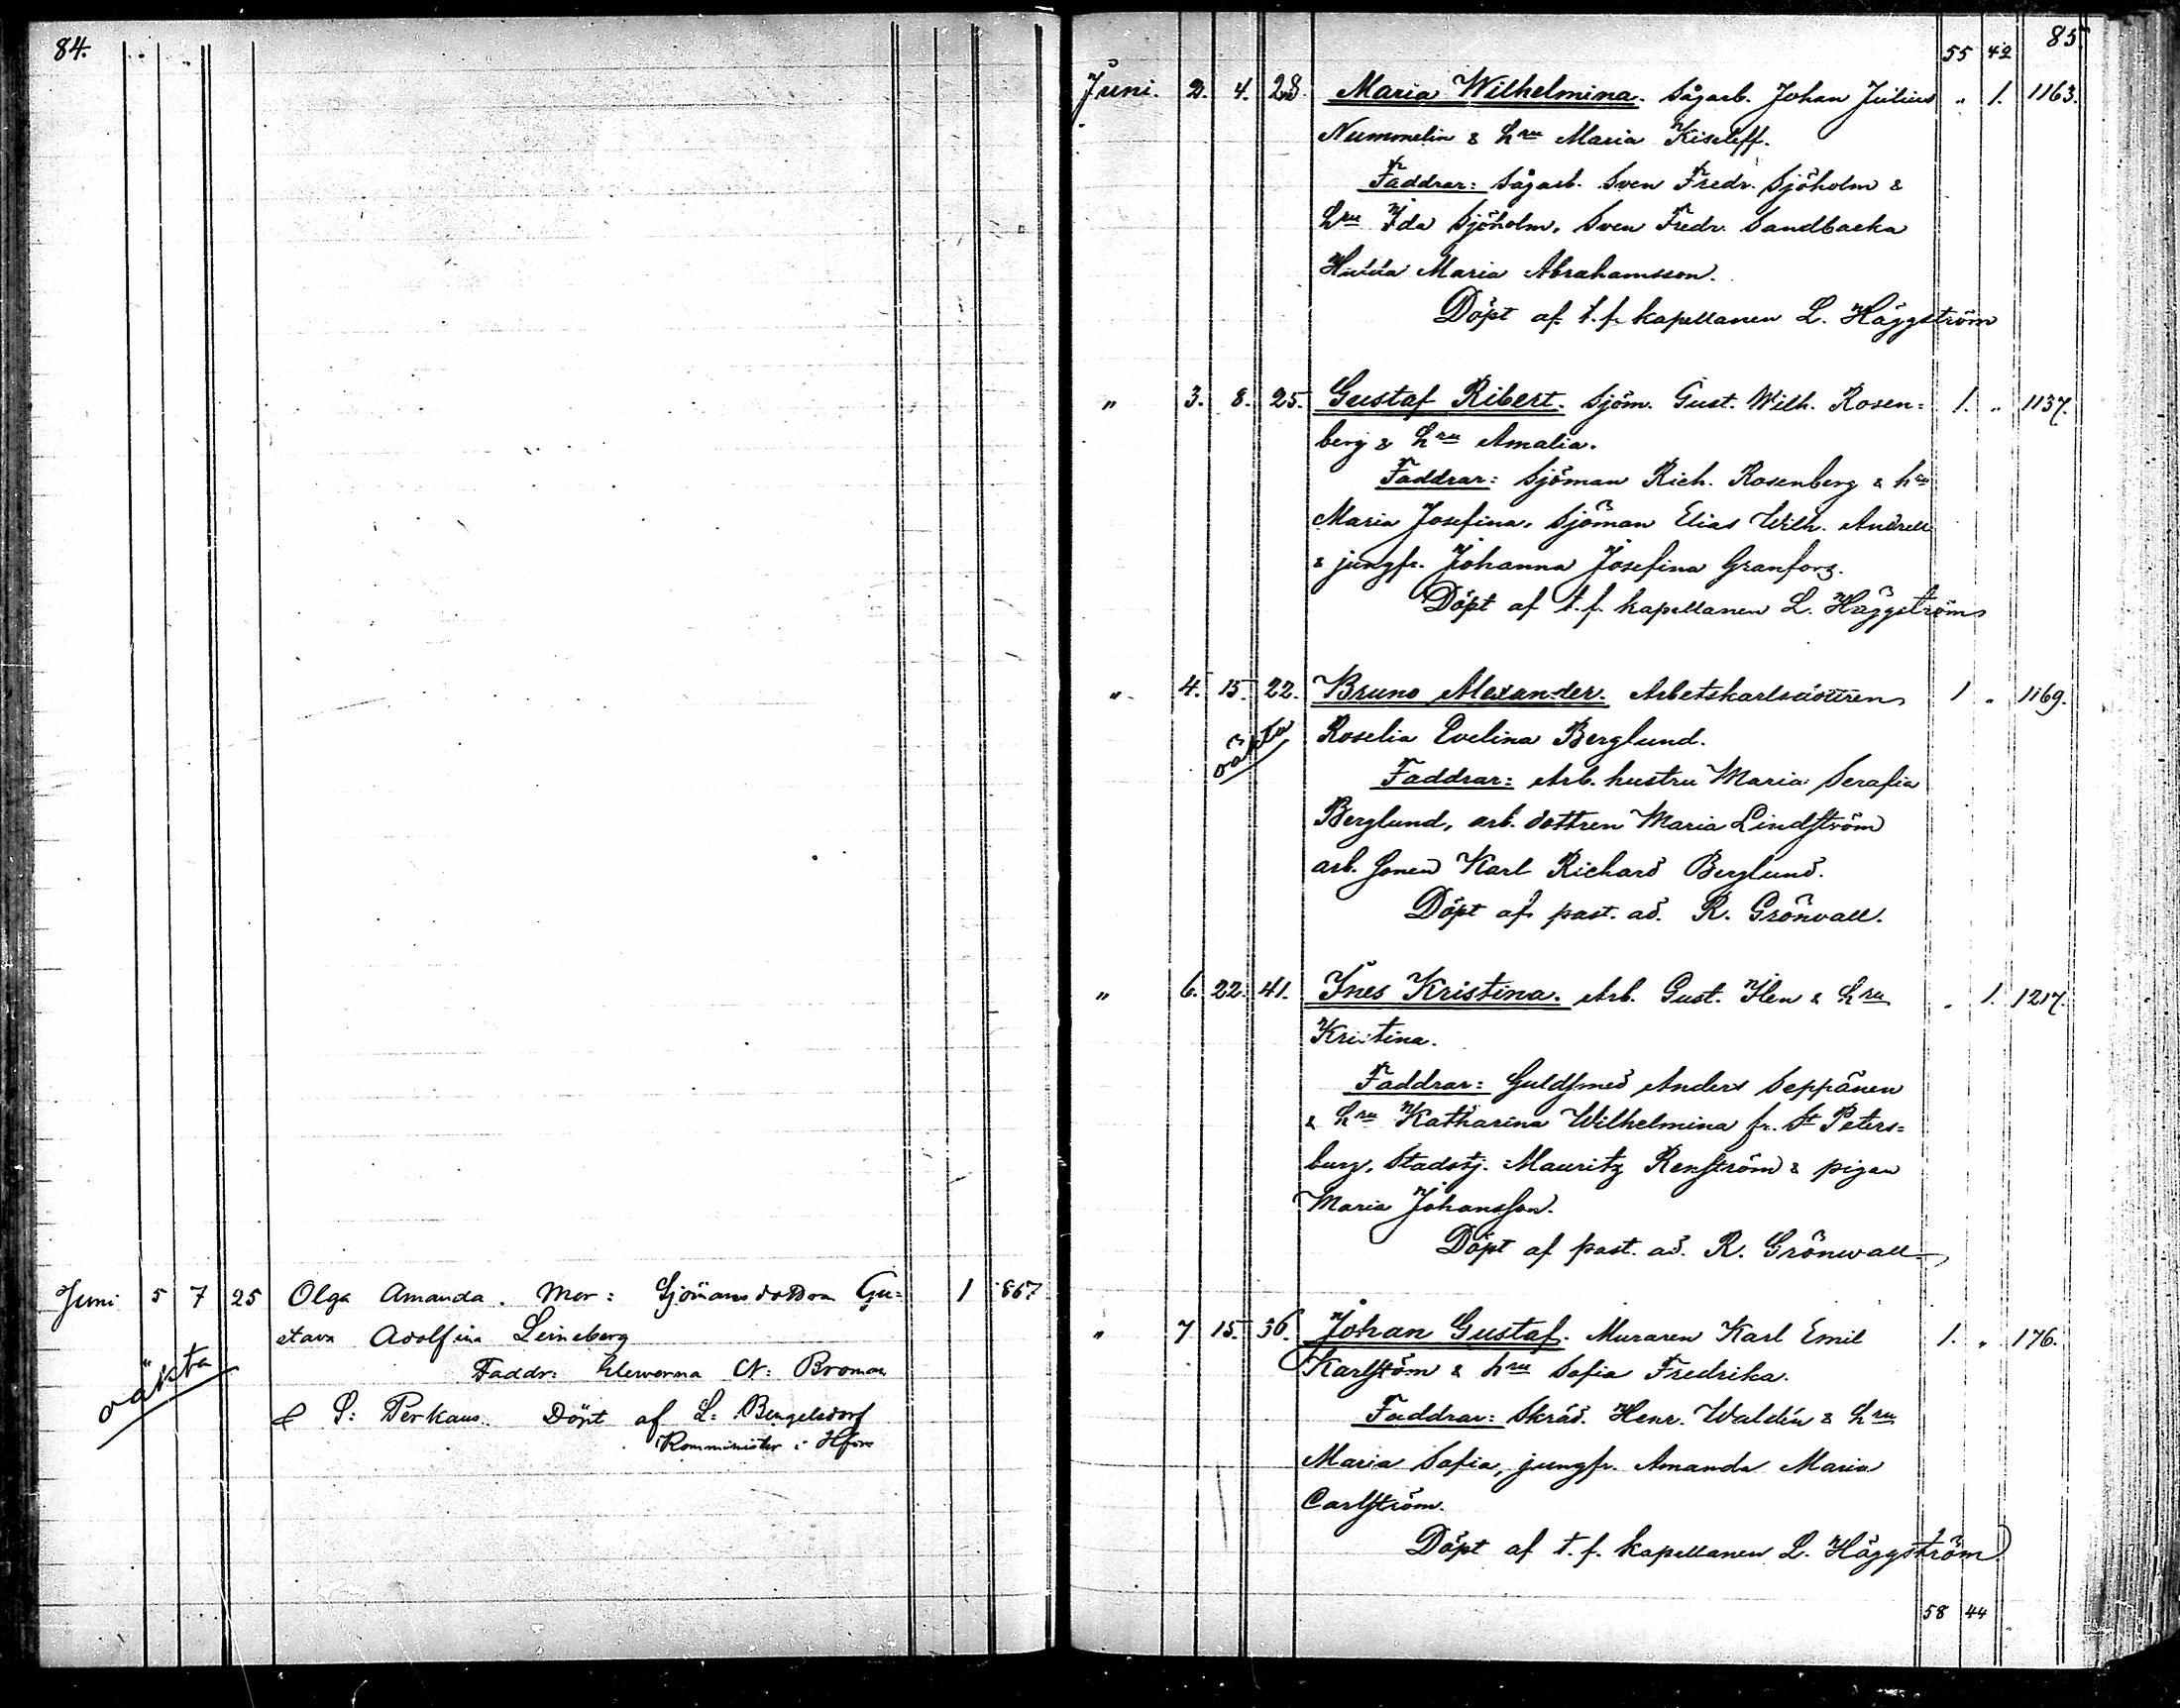 84.
Juni 5 7 25 Olga Amanda. Mor: Sjömansdottren Gu= 1 867
stava Adolfina Leineberg
oäkta
Faddr: Eleverna N: Broman
& S: Perkaus. Döpt af L: Bengelsdorf
Komminister i Hfors
85.
55 42
Juni. 2. 4. 28. Maria Wilhelmina. Sågarb. Johan Julius „ 1. 1163.
Nummelin & hru Maria Kiseleff.
Faddrar: Sågarb. Sven Fredr. Sjöholm &
hru Ida Sjöholm, Sven Fredr. Sandbacka
Maria Abrahamsson.
Döpt af t.f. kapellanen L. Häggström
„ 3. 8. 25. Gustaf Ribert. Sjöm. Gust. Wilh. Rosen= 1. „ 1137.
berg & hru Amalia.
Faddrar: Sjöman Rich. Rosenberg & hru
Maria Josefina, Sjöman Elias Wilh. Andrell
& jungfr. Johanna Josefina Granfors.
Döpt af t.f. kapellanen L. Häggström
„ 4. 15. 22. Bruno Alexander. Arbetskarlsdottren 1 „ 1169.
oäkta Roselia Evelina Berglund.
Faddrar: Arb. hustru Maria Serafia
Berglund, arb. dottren Maria Lindström
arb. sonen Karl Richard Berglund.
Döpt af past. ad. R. Grönvall.
„ 6. 22. 41. Ines Kristina. Arb. Gust. Ilen & hru „ 1. 1217.
Kristina.
Faddrar: Guldsmed Anders Seppänen
& hru Katharina Wilhelmina fr. St Peters=
burg, Stadstj. Mauritz Renström & pigan
Maria Johansson.
Döpt af past. ad. R. Grönwall
„ 7 15. 36. Johan Gustaf. Muraren Karl Emil 1. „ 176.
Karlström & hru Sofia Fredrika.
Faddrar: Skräd. Henr. Waldén & hru
Maria Sofia, jungfr. Amanda Maria
Carlström.
Döpt af t.f. kapellanen L. Häggström
58 44